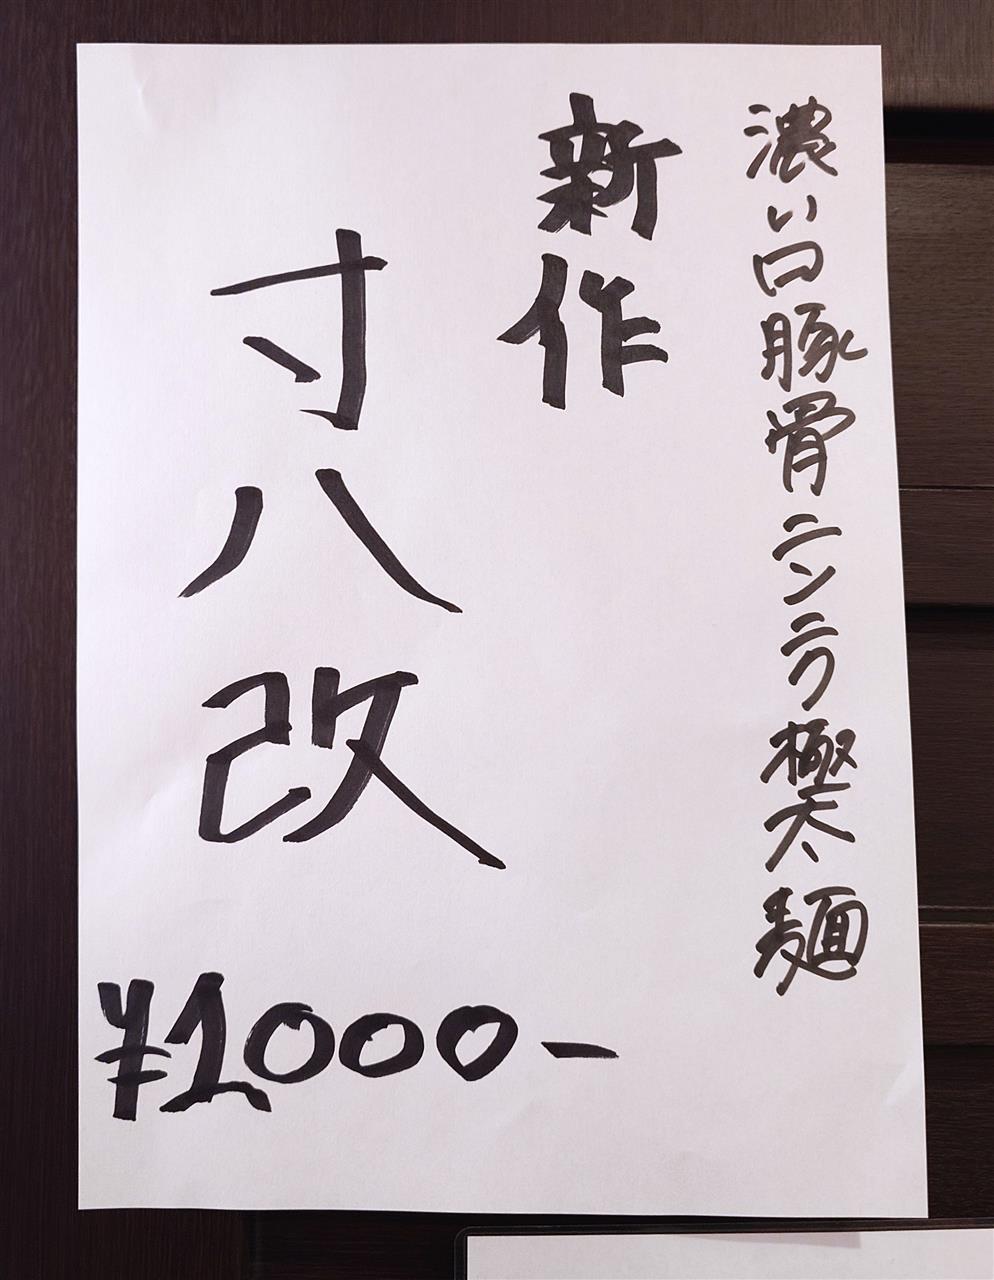 濃い口豚骨ニンニク極太麺
新作
寸八改
¥1000-